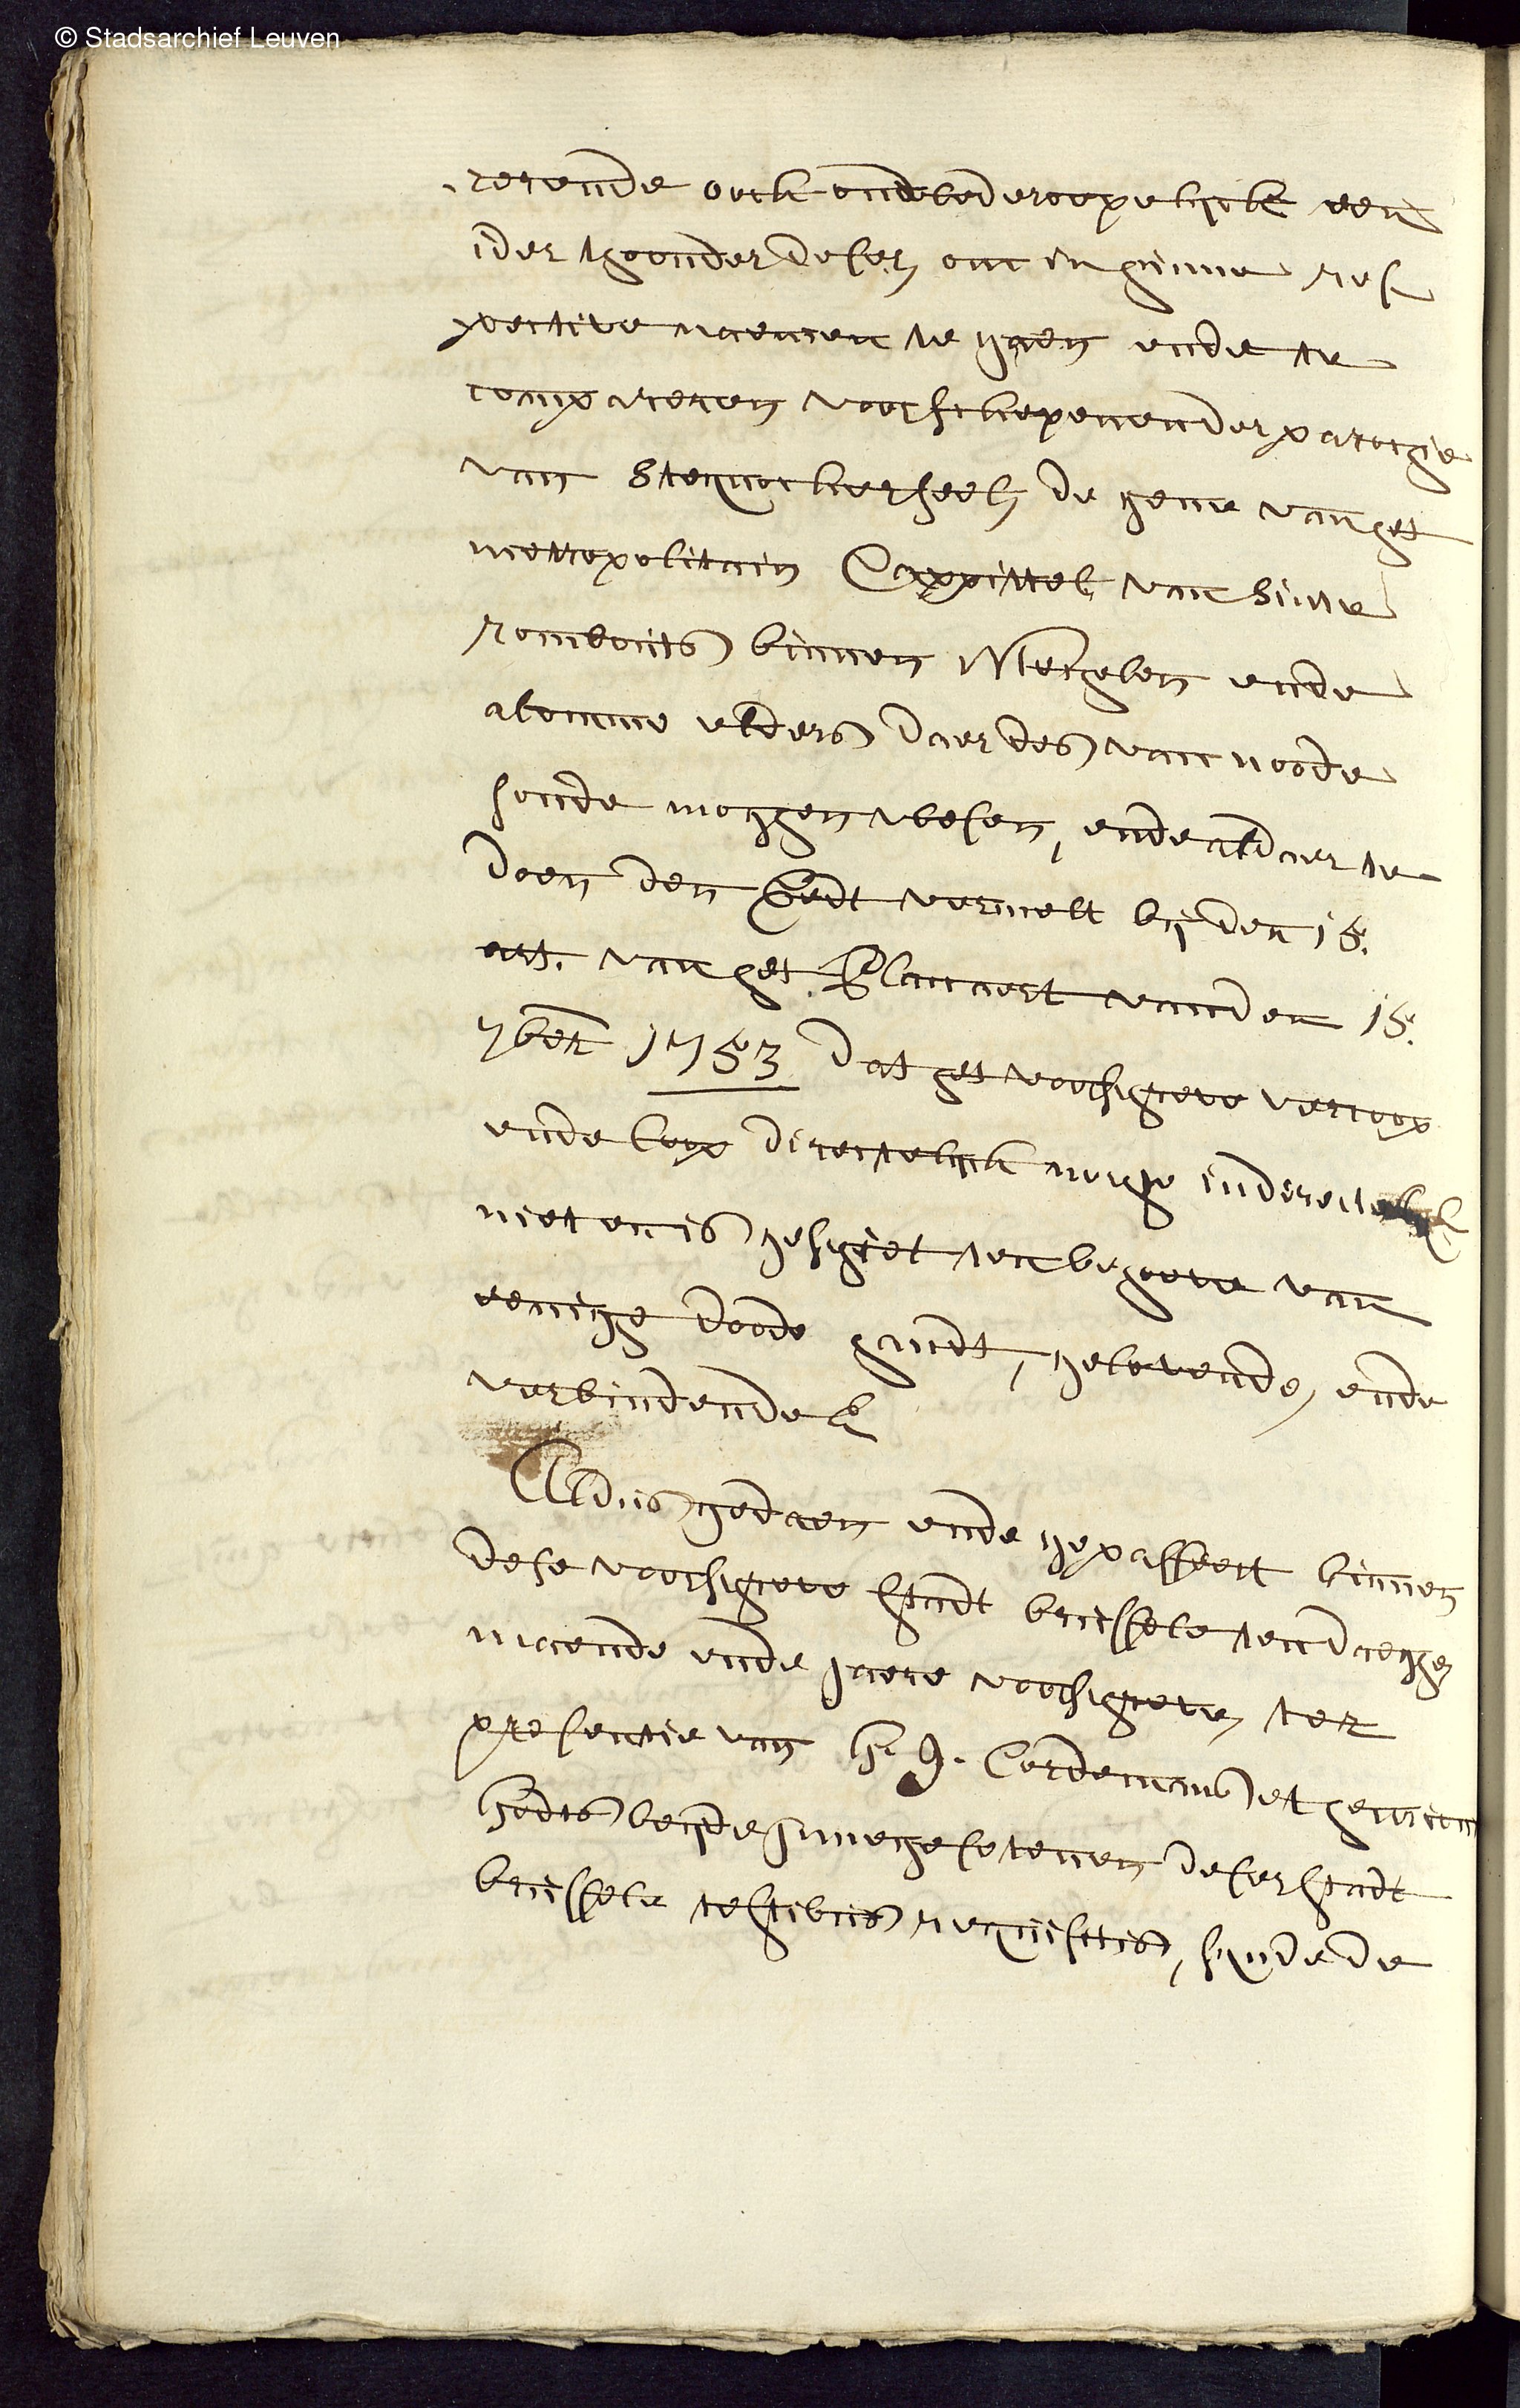 © Stadsarchief Leuven
rerende oock onwederroepelijck een
ider thoonder deser om in hunne res
pective naemen te gaen ende te
compareren voor schepenen der parochie
van Steynockerseel de gene van het
metropolitain Cappittel van Sinte
rombouts binnen Mechelen ende
alomme elders daer des van noode
soude moghen wesen, ende aldaer te
doen den Eedt vermelt bij den 15.
art. van het Placcaert van den 15.
7ber 1753 dat het voorschreve vercoop
ende coop directelyck noghe indirectelyck
niet en is geschiet ten behoeve van
eenighe doode handt, gelovende, ende
verbindende &
Aldus gedaen ende gepasseert binnen
dese voorschreve stadt brussele ten daeghe
maende ende jaere voorschreve, ter
presentie van h. J. Cordemans et
beyde innegesetenen deser stadt
brussele testibus requisitis, synde de